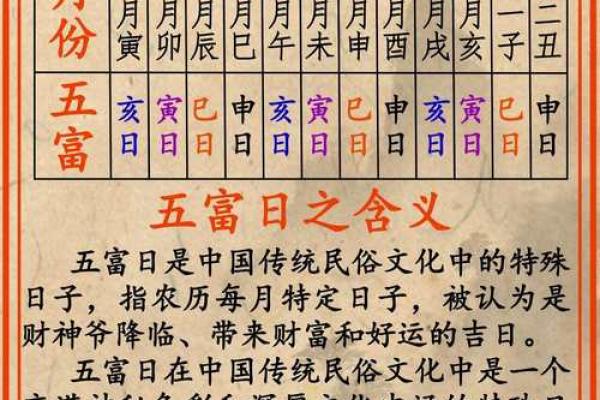 月份 月寅 月卯 月辰 月巳 月午 月未 月申 月酉 月戌 月亥 一子 二丑
五富 亥日 寅日 巳日 申日 亥日 寅日 巳日 申日 亥日 寅日 巳日 申日
五富日之含义
五富日是中国传统民俗文化中的特殊
日子，指农历每月特定日子，被认为是
财神爷降临、带来财富和好运的吉日。
五富日在中国传统民俗文化中是一个